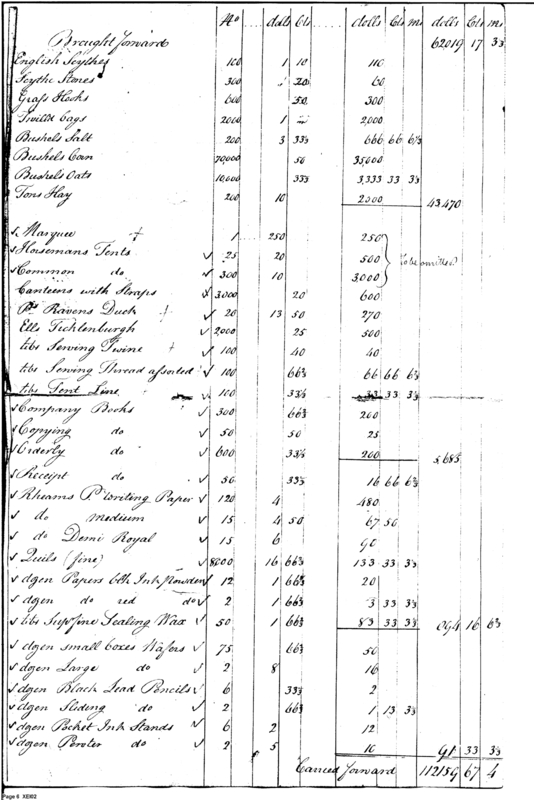 No dolls Cts dolls Cts ms dolls Cts ms
Brought forward 62019 17 3⅓
English Scythes 100 1 10 110
Scythe Stones 300 " 20 60
Grass Hooks 600 50 300
Twilld bags 2000 1 " 2,000
Bushels Salt 200 3 33⅓ 666 66 6⅔
Bushels Corn 70000 50 35000
Bushels Oats 10,000 33⅓ 3,333 33 3⅓
Tons Hay 200 10 2000 43.470
Marquee 1 250 250
Horsemans Tents 25 20 500 to be omitted
Common do 300 10 3,000
Canteens with Straps 3,000 20 600
Ps Ravens Duck 20 13 50 270
Ells Ticklenburgh 2,000 25 500
lbs Sewing Twine 100 40 40
lbs Sewing Thread assorted 100 66⅔ 66 66 6⅔
lbs Tent Line 100 33⅓ 33 33 3⅓
Company Books 300 66⅔ 200
Copying do 50 50 25
Orderly do 600 33⅓ 200 5,685
Receipt do 50 33⅓ 16 66 6⅔
Rheams P Writing Paper 120 4 480
do medium 15 4 50 67 50
do Demi Royal 15 6 90
Quils (fine) 8000 16 66⅔ 133 33 3⅓
dozen Papers blk Ink Powder 12 1 66⅔ 20
dozen do red do 2 1 66⅔ 3 33 3⅓
lbs Supfine Sealing Wax 50 1 66⅔ 83 33 3⅓ 894 16 6⅔
dozen small boxes Wafers 75 66⅔ 50
dozen Large do 2 8 16
dozen Black Lead Pencils 6 33⅓ 2
dozen Sliding do 2 66⅔ 1 33 3⅓
dozen Pocket Ink Stands 6 2 12
dozen Pewter do 2 5 10 91 33 3⅓
Carried forward 112159 67 4
Page 6 XEI02